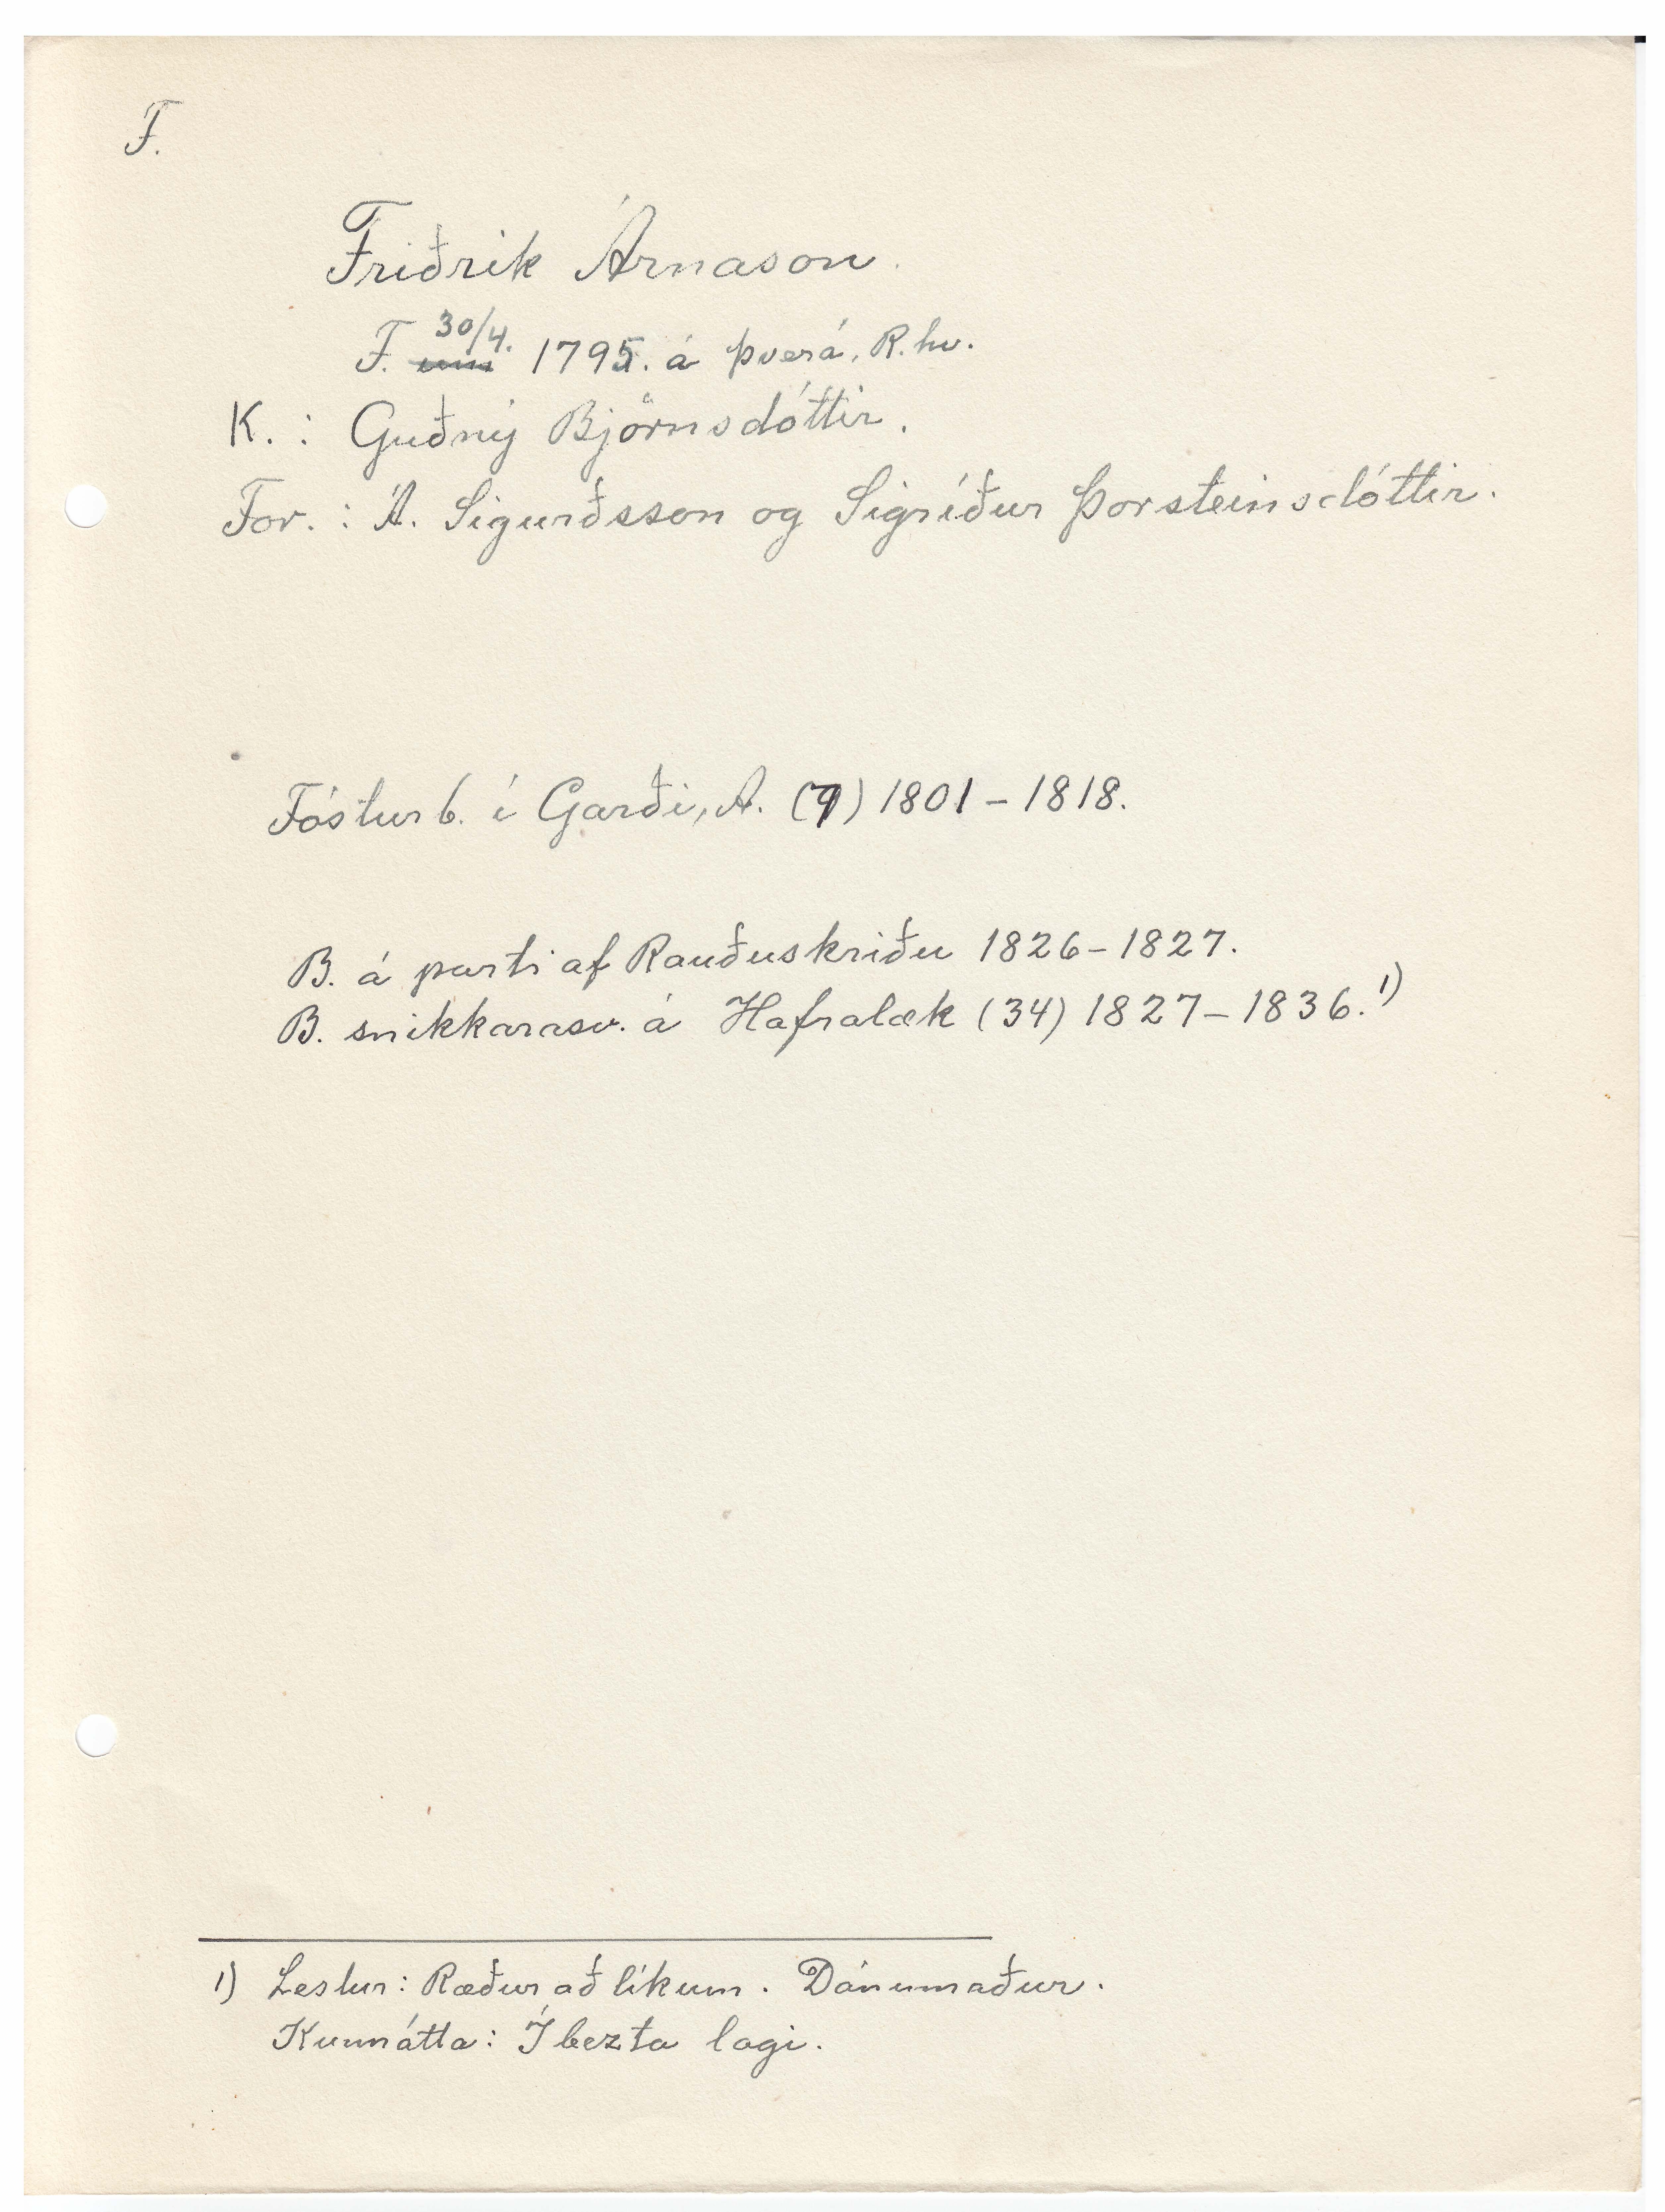 F.
Friðrik Árnason.
F. 30/4. 1795. á Þverá, R.hv.
K.: Guðný Björnsdóttir.
For.: Á. Sigurðsson og Sigríður Þorsteinsdóttir.
Fósturb. í Garði, A. (7) 1801 - 1818.
B. á parti af Rauðuskriðu 1826 - 1827.
B. snikkarasv. á Hafralæk (34) 1827 - 1836. 1)
1) Lestur: Ræður að líkum. Dánumaður.
Kunnátta: Í bezta lagi.